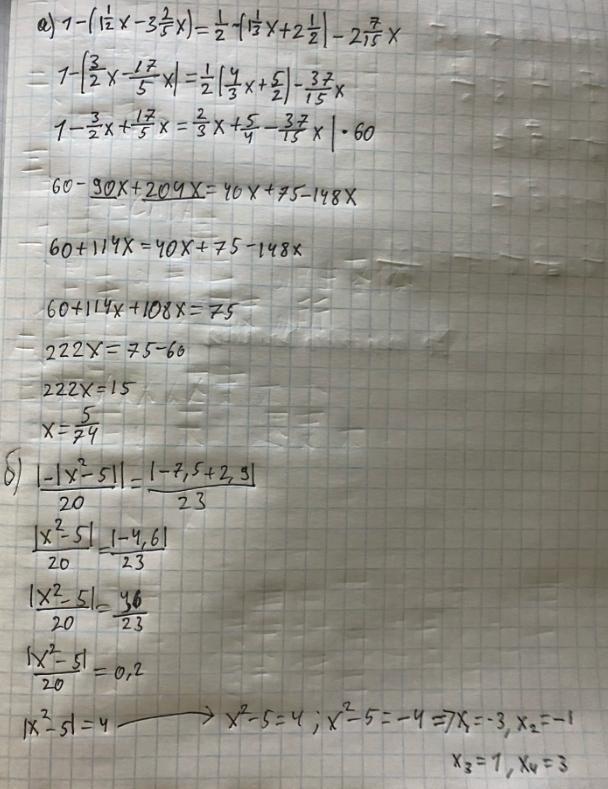 а) 1-(1 1/2 x-3 2/5 x)=1/2·(1 1/3 x+2 1/2)-2 7/15 x
1-(3/2 x-17/5 x)=1/2(4/3 x+5/2)-37/15 x
1-3/2 x+17/5 x=2/3 x+5/4-37/15 x|·60
60-90x+204x=40x+75-148x
60+114x=40x+75-148x
60+114x+108x=75
222x=75-60
222x=15
x=5/74
б) |-|x²-5||/20=|-7,5+2,9|/23
|x²-5|/20=|-4,6|/23
|x²-5|/20=46/23
|x²-5|/20=0,2
|x²-5|=4 → x²-5=4; x²-5=-4 => x₁=-3, x₂=-1
x₃=1, x₄=3